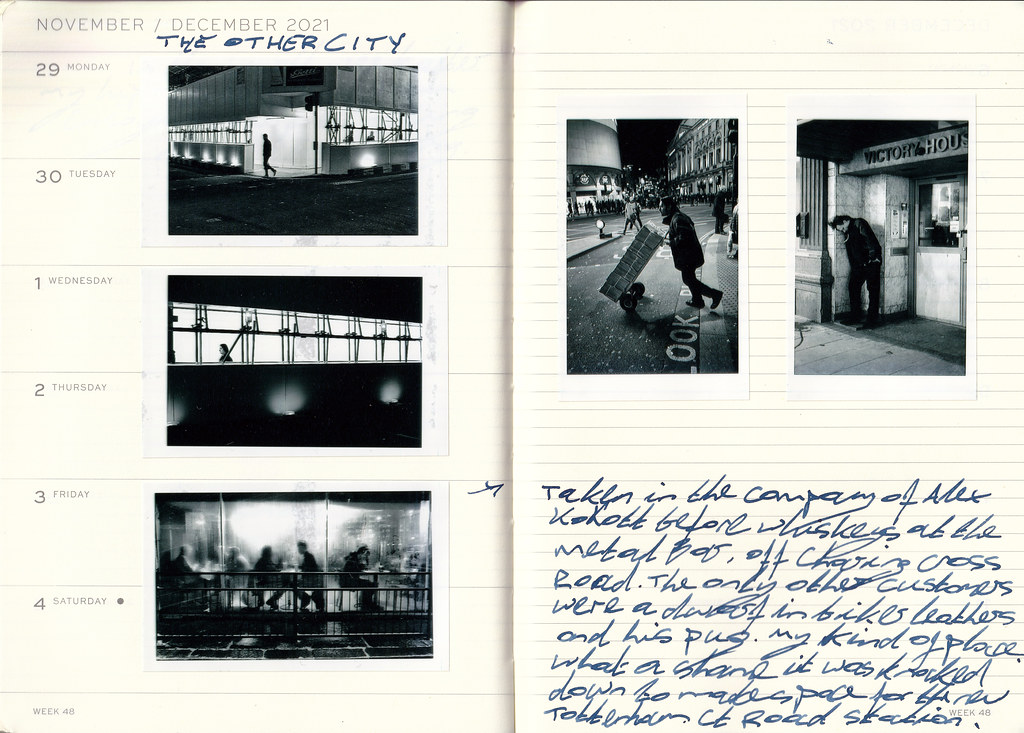 NOVEMBER / DECEMBER 2021
THE OTHER CITY
29 MONDAY
30 TUESDAY
1 WEDNESDAY
2 THURSDAY
3 FRIDAY
4 SATURDAY
WEEK 48
VICTORY HOUS
LOOK
Taken in the company of Alex
before whiskeys at the
metal Bar, off Charing Cross
Road. The only other customers
were a in biker leathers
and his pug. My kind of place.
what a shame it was knocked
down to make space for the new
Tottenham Ct Road Station.
WEEK 48